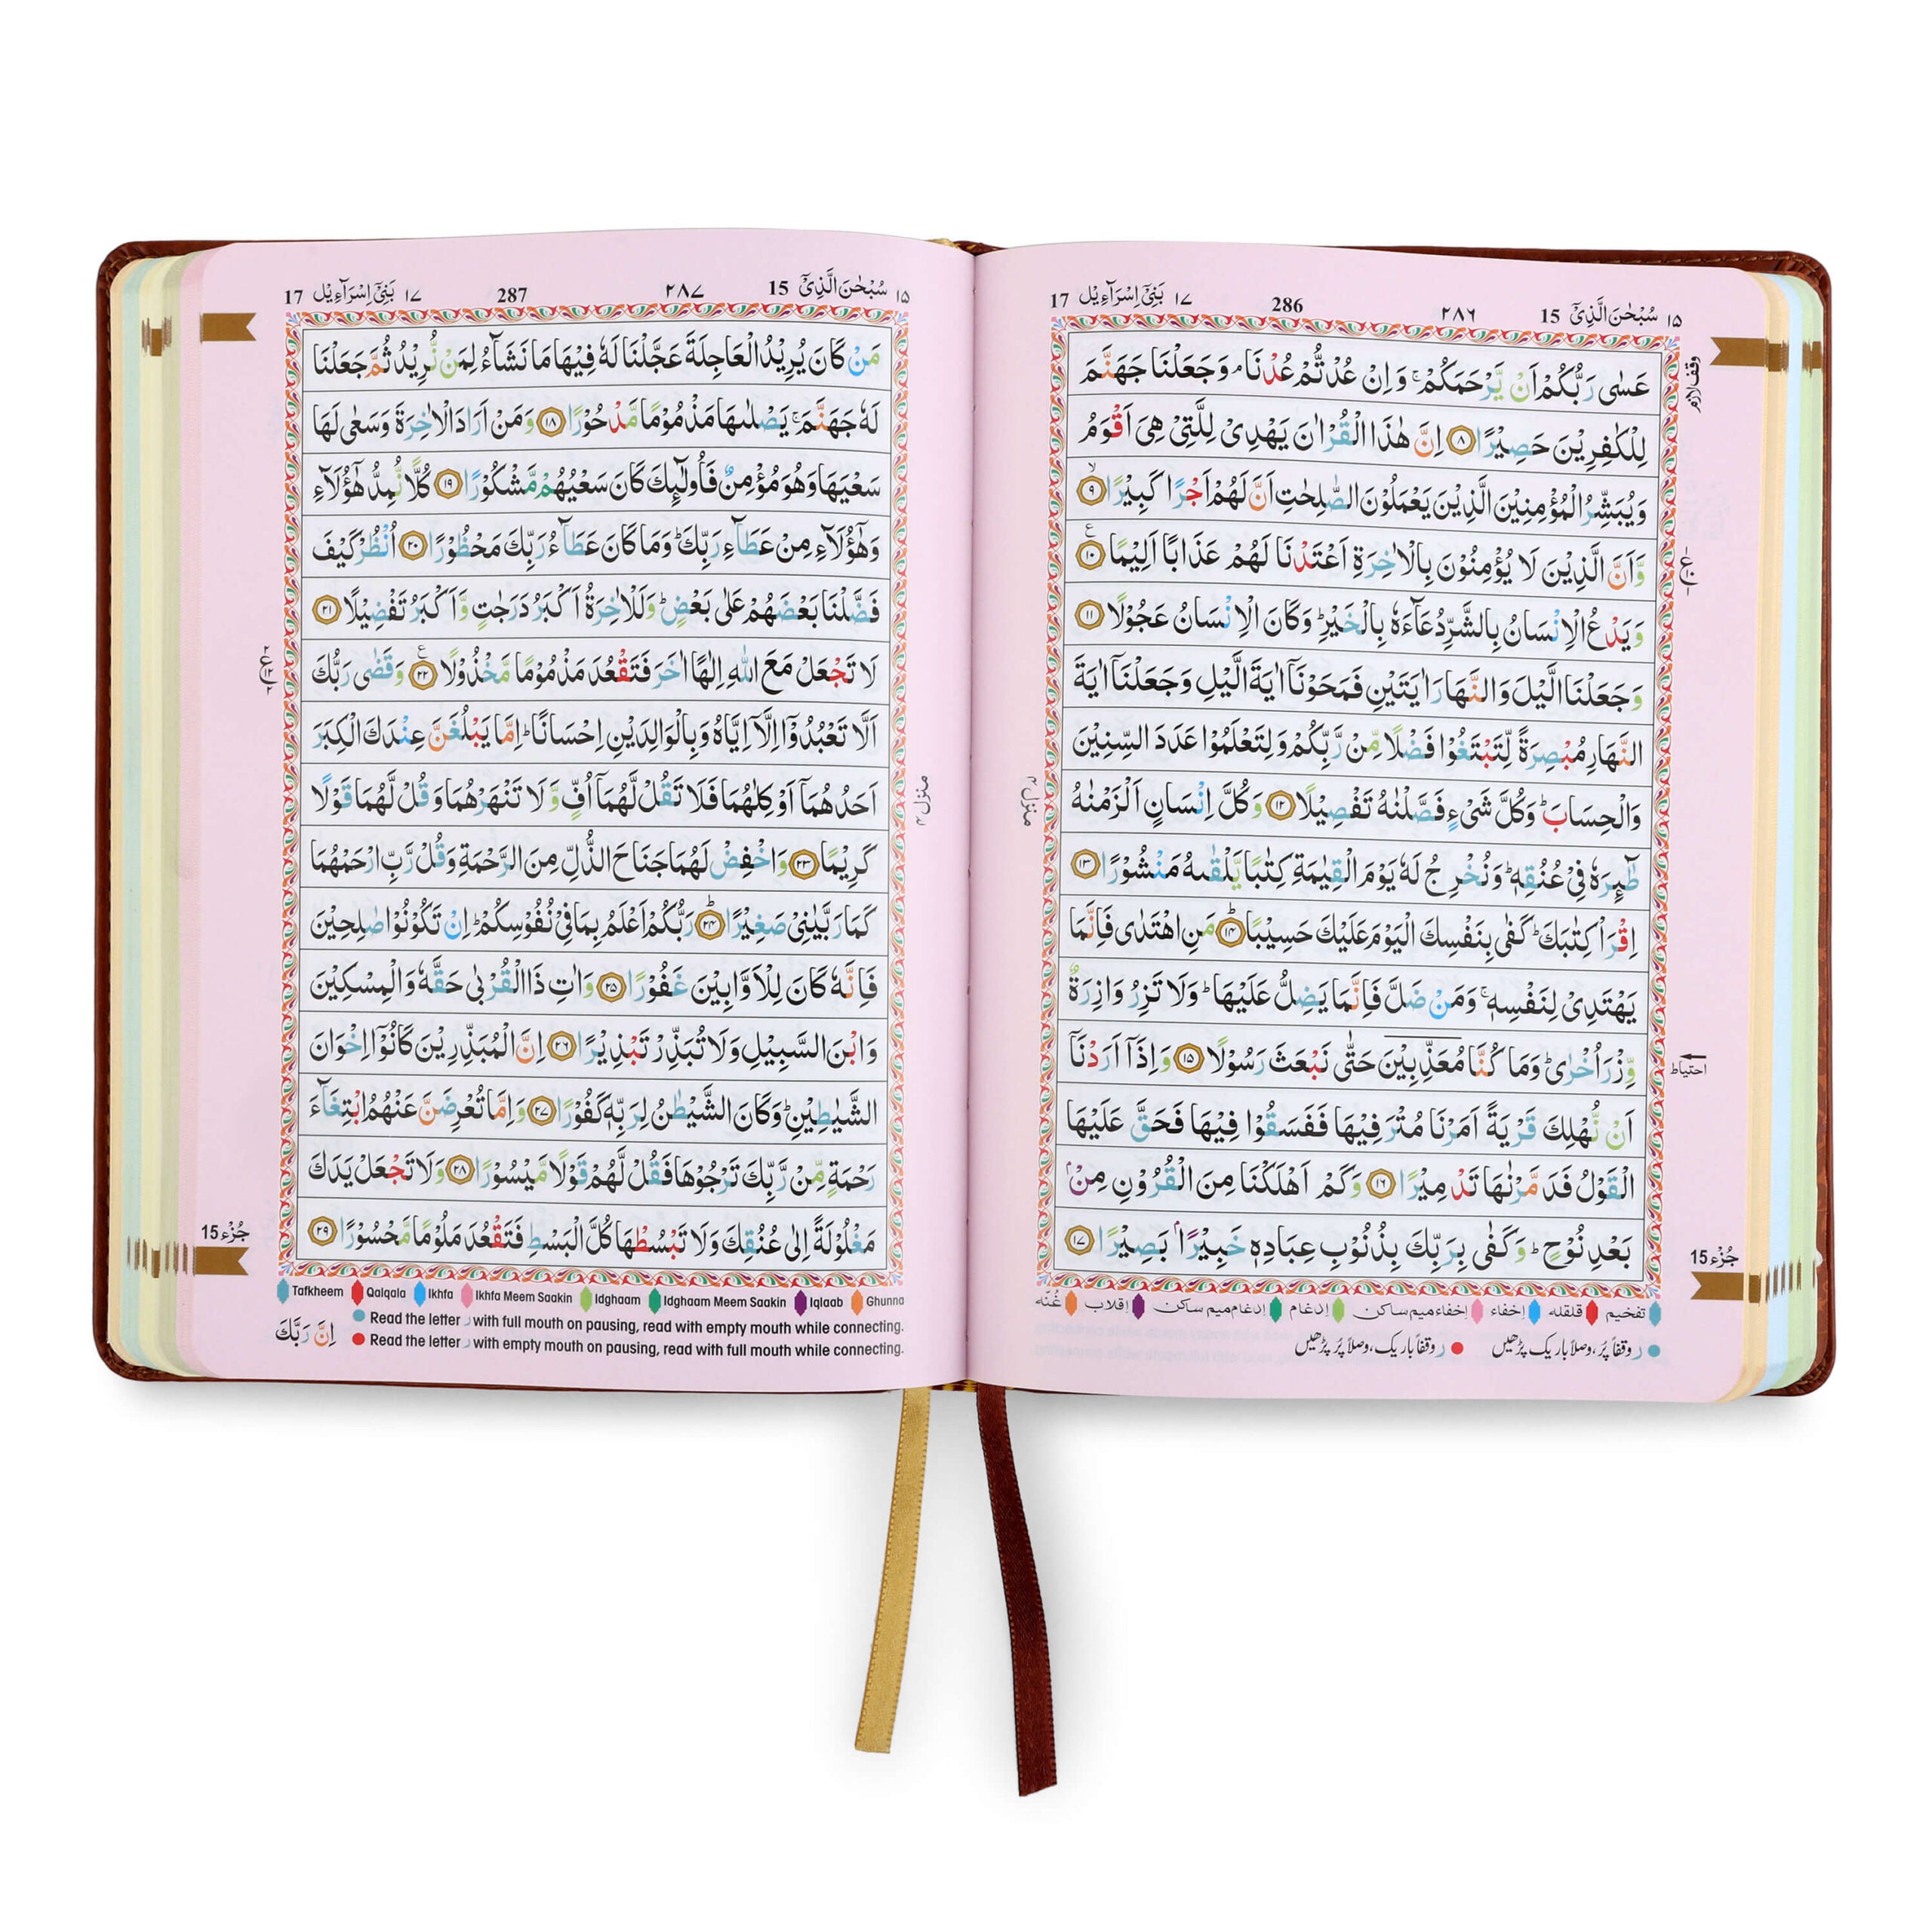 ١٥ سُبْحٰنَ الَّذِیْۤ 15 ٢٨٦ 286 ١٧ بَنِیْۤ اِسْرَآءِیْل 17
عَسٰی رَبُّكُمْ اَنْ یَّرْحَمَكُمْ ۚ وَ اِنْ عُدْتُّمْ عُدْنَا ۘ وَ جَعَلْنَا جَهَنَّمَ
لِلْكٰفِرِیْنَ حَصِیْرًا ﴿۸﴾ اِنَّ هٰذَا الْقُرْاٰنَ یَهْدِیْ لِلَّتِیْ هِیَ اَقْوَمُ
وَیُبَشِّرُ الْمُؤْمِنِیْنَ الَّذِیْنَ یَعْمَلُوْنَ الصّٰلِحٰتِ اَنَّ لَهُمْ اَجْرًا كَبِیْرًا ﴿۹﴾
وَّ اَنَّ الَّذِیْنَ لَا یُؤْمِنُوْنَ بِالْاٰخِرَةِ اَعْتَدْنَا لَهُمْ عَذَابًا اَلِیْمًا ﴿۱۰﴾
وَ یَدْعُ الْاِنْسَانُ بِالشَّرِّ دُعَآءَهٗ بِالْخَیْرِ ؕ وَ كَانَ الْاِنْسَانُ عَجُوْلًا ﴿۱۱﴾
وَ جَعَلْنَا الَّیْلَ وَ النَّهَارَ اٰیَتَیْنِ فَمَحَوْنَاۤ اٰیَةَ الَّیْلِ وَ جَعَلْنَاۤ اٰیَةَ
النَّهَارِ مُبْصِرَةً لِّتَبْتَغُوْا فَضْلًا مِّنْ رَّبِّكُمْ وَ لِتَعْلَمُوْا عَدَدَ السِّنِیْنَ
وَ الْحِسَابَ ؕ وَ كُلَّ شَیْءٍ فَصَّلْنٰهُ تَفْصِیْلًا ﴿۱۲﴾ وَ كُلَّ اِنْسَانٍ اَلْزَمْنٰهُ
طٰٓئِرَهٗ فِیْ عُنُقِهٖ ؕ وَ نُخْرِجُ لَهٗ یَوْمَ الْقِیٰمَةِ كِتٰبًا یَّلْقٰىهُ مَنْشُوْرًا ﴿۱۳﴾
اِقْرَاْ كِتٰبَكَ ؕ كَفٰی بِنَفْسِكَ الْیَوْمَ عَلَیْكَ حَسِیْبًا ﴿۱۴﴾ مَنِ اهْتَدٰی فَاِنَّمَا
یَهْتَدِیْ لِنَفْسِهٖ ۚ وَ مَنْ ضَلَّ فَاِنَّمَا یَضِلُّ عَلَیْهَا ؕ وَ لَا تَزِرُ وَازِرَةٌ
وِّزْرَ اُخْرٰی ؕ وَ مَا كُنَّا مُعَذِّبِیْنَ حَتّٰی نَبْعَثَ رَسُوْلًا ﴿۱۵﴾ وَ اِذَاۤ اَرَدْنَاۤ
اَنْ نُّهْلِكَ قَرْیَةً اَمَرْنَا مُتْرَفِیْهَا فَفَسَقُوْا فِیْهَا فَحَقَّ عَلَیْهَا
الْقَوْلُ فَدَمَّرْنٰهَا تَدْمِیْرًا ﴿۱۶﴾ وَ كَمْ اَهْلَكْنَا مِنَ الْقُرُوْنِ مِنْۢ
بَعْدِ نُوْحٍ ؕ وَ كَفٰی بِرَبِّكَ بِذُنُوْبِ عِبَادِهٖ خَبِیْرًۢا بَصِیْرًا ﴿۱۷﴾
وقف لازم
ع
احتیاط
منزل ۴
جُزْء 15
تفخیم قلقلہ إخفاء إخفاء میم ساکن إدغام إدغام میم ساکن إقلاب غُنّه
ر وقفاً پُر، وصلاً باریک پڑھیں ر وقفاً باریک، وصلاً پُر پڑھیں
١٥ سُبْحٰنَ الَّذِیْۤ 15 ٢٨٧ 287 ١٧ بَنِیْۤ اِسْرَآءِیْل 17
مَنْ كَانَ یُرِیْدُ الْعَاجِلَةَ عَجَّلْنَا لَهٗ فِیْهَا مَا نَشَآءُ لِمَنْ نُّرِیْدُ ثُمَّ جَعَلْنَا
لَهٗ جَهَنَّمَ ۚ یَصْلٰىهَا مَذْمُوْمًا مَّدْحُوْرًا ﴿۱۸﴾ وَ مَنْ اَرَادَ الْاٰخِرَةَ وَ سَعٰی لَهَا
سَعْیَهَا وَ هُوَ مُؤْمِنٌ فَاُولٰٓئِكَ كَانَ سَعْیُهُمْ مَّشْكُوْرًا ﴿۱۹﴾ كُلًّا نُّمِدُّ هٰۤؤُلَآءِ
وَ هٰۤؤُلَآءِ مِنْ عَطَآءِ رَبِّكَ ؕ وَ مَا كَانَ عَطَآءُ رَبِّكَ مَحْظُوْرًا ﴿۲۰﴾ اُنْظُرْ كَیْفَ
فَضَّلْنَا بَعْضَهُمْ عَلٰی بَعْضٍ ؕ وَ لَلْاٰخِرَةُ اَكْبَرُ دَرَجٰتٍ وَّ اَكْبَرُ تَفْضِیْلًا ﴿۲۱﴾
لَا تَجْعَلْ مَعَ اللّٰهِ اِلٰهًا اٰخَرَ فَتَقْعُدَ مَذْمُوْمًا مَّخْذُوْلًا ﴿۲۲﴾ وَ قَضٰی رَبُّكَ
اَلَّا تَعْبُدُوْۤا اِلَّاۤ اِیَّاهُ وَ بِالْوَالِدَیْنِ اِحْسَانًا ؕ اِمَّا یَبْلُغَنَّ عِنْدَكَ الْكِبَرَ
اَحَدُهُمَاۤ اَوْ كِلٰهُمَا فَلَا تَقُلْ لَّهُمَاۤ اُفٍّ وَّ لَا تَنْهَرْهُمَا وَ قُلْ لَّهُمَا قَوْلًا
كَرِیْمًا ﴿۲۳﴾ وَ اخْفِضْ لَهُمَا جَنَاحَ الذُّلِّ مِنَ الرَّحْمَةِ وَ قُلْ رَّبِّ ارْحَمْهُمَا
كَمَا رَبَّیٰنِیْ صَغِیْرًا ﴿۲۴﴾ رَبُّكُمْ اَعْلَمُ بِمَا فِیْ نُفُوْسِكُمْ ؕ اِنْ تَكُوْنُوْا صٰلِحِیْنَ
فَاِنَّهٗ كَانَ لِلْاَوَّابِیْنَ غَفُوْرًا ﴿۲۵﴾ وَ اٰتِ ذَا الْقُرْبٰی حَقَّهٗ وَ الْمِسْكِیْنَ
وَ ابْنَ السَّبِیْلِ وَ لَا تُبَذِّرْ تَبْذِیْرًا ﴿۲۶﴾ اِنَّ الْمُبَذِّرِیْنَ كَانُوْۤا اِخْوَانَ
الشَّیٰطِیْنِ ؕ وَ كَانَ الشَّیْطٰنُ لِرَبِّهٖ كَفُوْرًا ﴿۲۷﴾ وَ اِمَّا تُعْرِضَنَّ عَنْهُمُ ابْتِغَآءَ
رَحْمَةٍ مِّنْ رَّبِّكَ تَرْجُوْهَا فَقُلْ لَّهُمْ قَوْلًا مَّیْسُوْرًا ﴿۲۸﴾ وَ لَا تَجْعَلْ یَدَكَ
مَغْلُوْلَةً اِلٰی عُنُقِكَ وَ لَا تَبْسُطْهَا كُلَّ الْبَسْطِ فَتَقْعُدَ مَلُوْمًا مَّحْسُوْرًا ﴿۲۹﴾
منزل ۴
ع
جُزْء 15
Tafkheem Qalqala Ikhfa Ikhfa Meem Saakin Idghaam Idghaam Meem Saakin Iqlaab Ghunna
Read the letter ر with full mouth on pausing, read with empty mouth while connecting.
Read the letter ر with empty mouth on pausing, read with full mouth while connecting.
اِنَّ رَبَّكَ